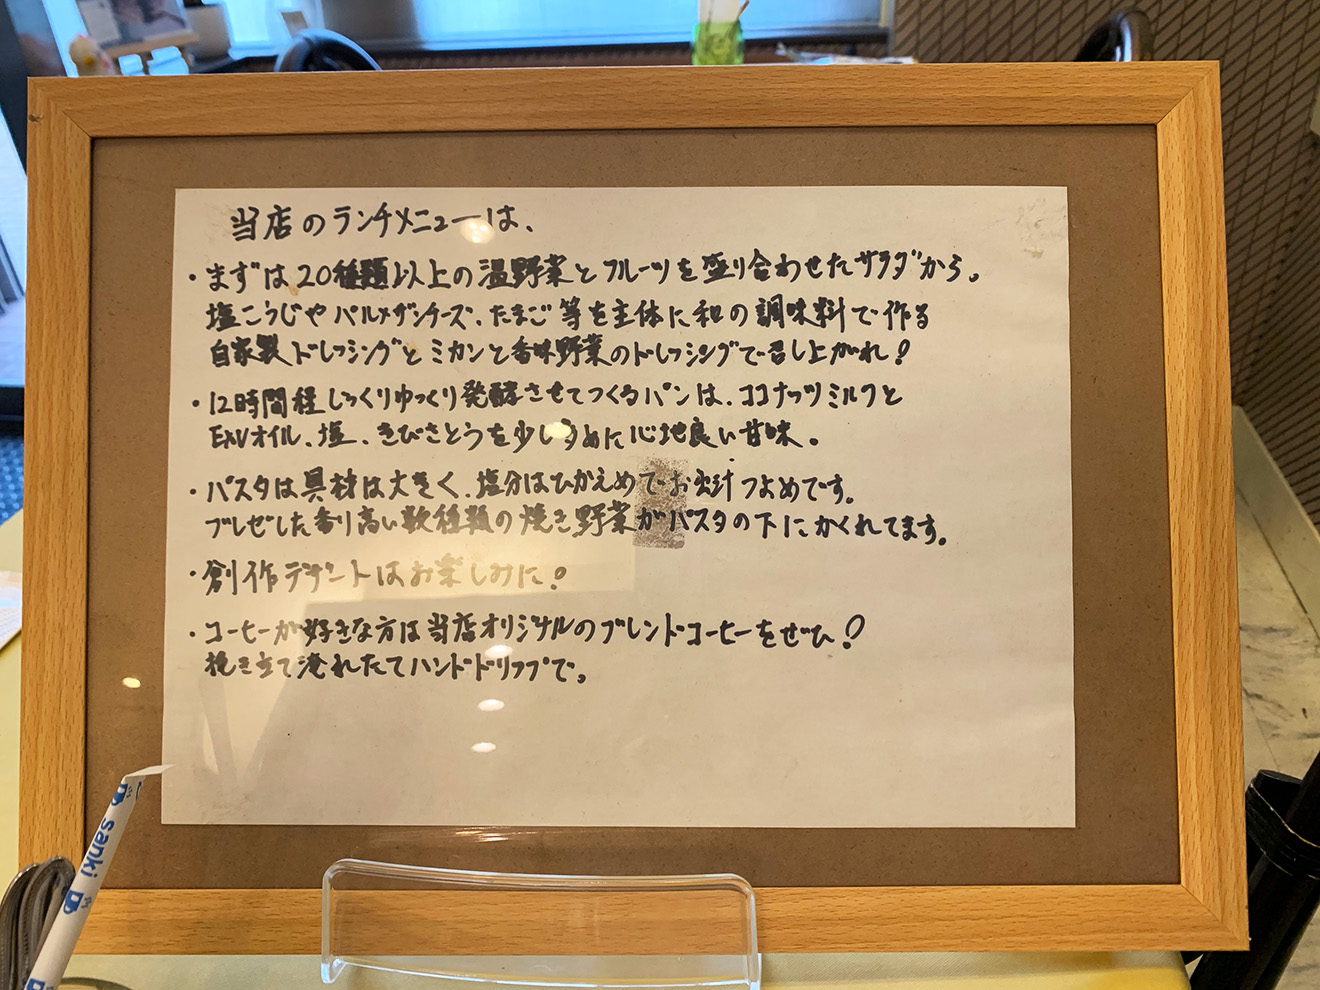 当店のランチメニューは、
・まずは20種類以上の温野菜とフルーツを盛り合わせたサラダから。
塩こうじやパルメザンチーズ、たまご等を主体に和の調味料で作る
自家製ドレッシングとミカンと香味野菜のドレッシングで召し上がれ!
・12時間程じっくりゆっくり発酵させてつくるパンは、ココナッツミルクと
EXVオイル、塩、きびさとうを少しすめに心地良い甘味。
・パスタは具材は大きく、塩分はひかえめでお出汁つよめです。
ブレゼした香り高い数種類の焼き野菜がパスタの下にかくれてます。
・創作デザートはお楽しみに!
・コーヒーが好きな方は当店オリジナルのブレンドコーヒーをぜひ!
挽き立て淹れたてハンドドリップで。
sanki